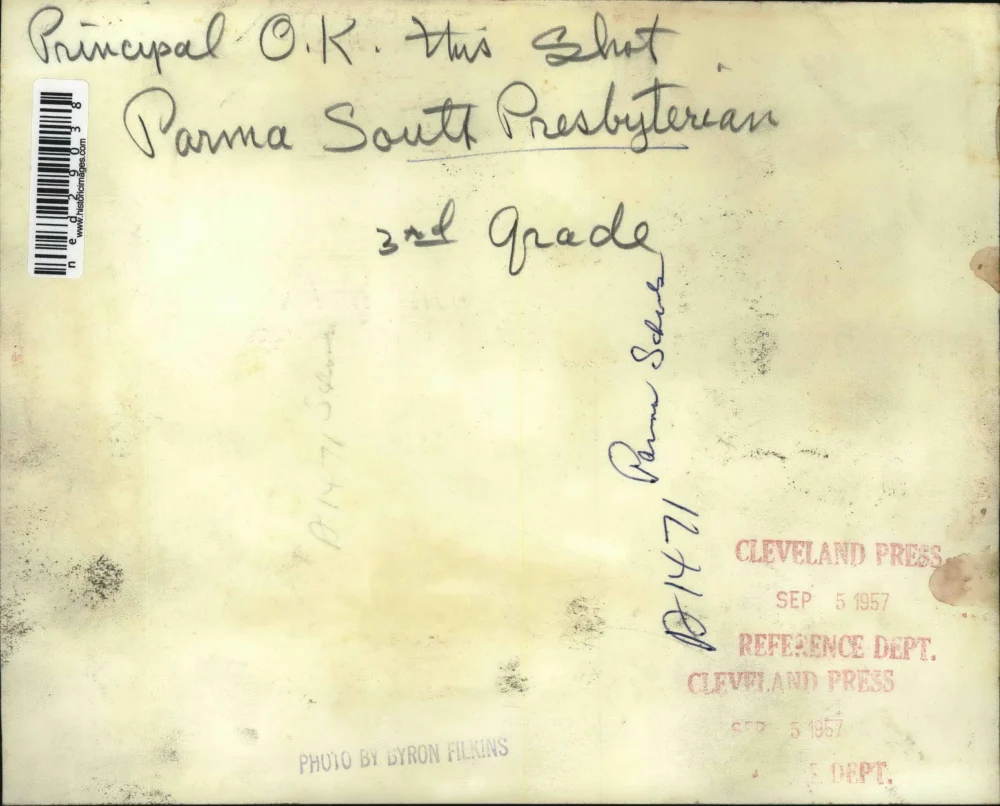 Principal O.K. this shot
Parma South Presbyterian
3rd Grade
ned29038
www.historicimages.com
A1471 Parma Schools
A1471 Schools
CLEVELAND PRESS
SEP 5 1957
REFERENCE DEPT.
CLEVELAND PRESS
SEP 5 1957
E DEPT.
PHOTO BY BYRON FILKINS